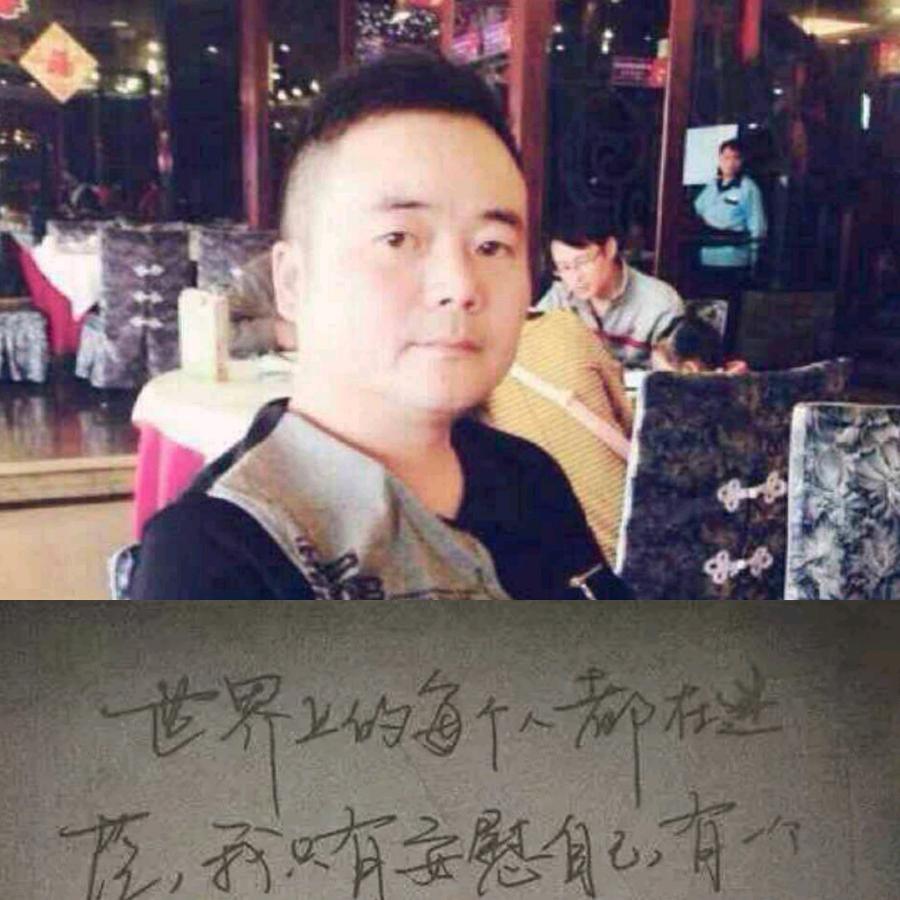 世界上的每个人都在进
陆,我只有安慰自己,有一个